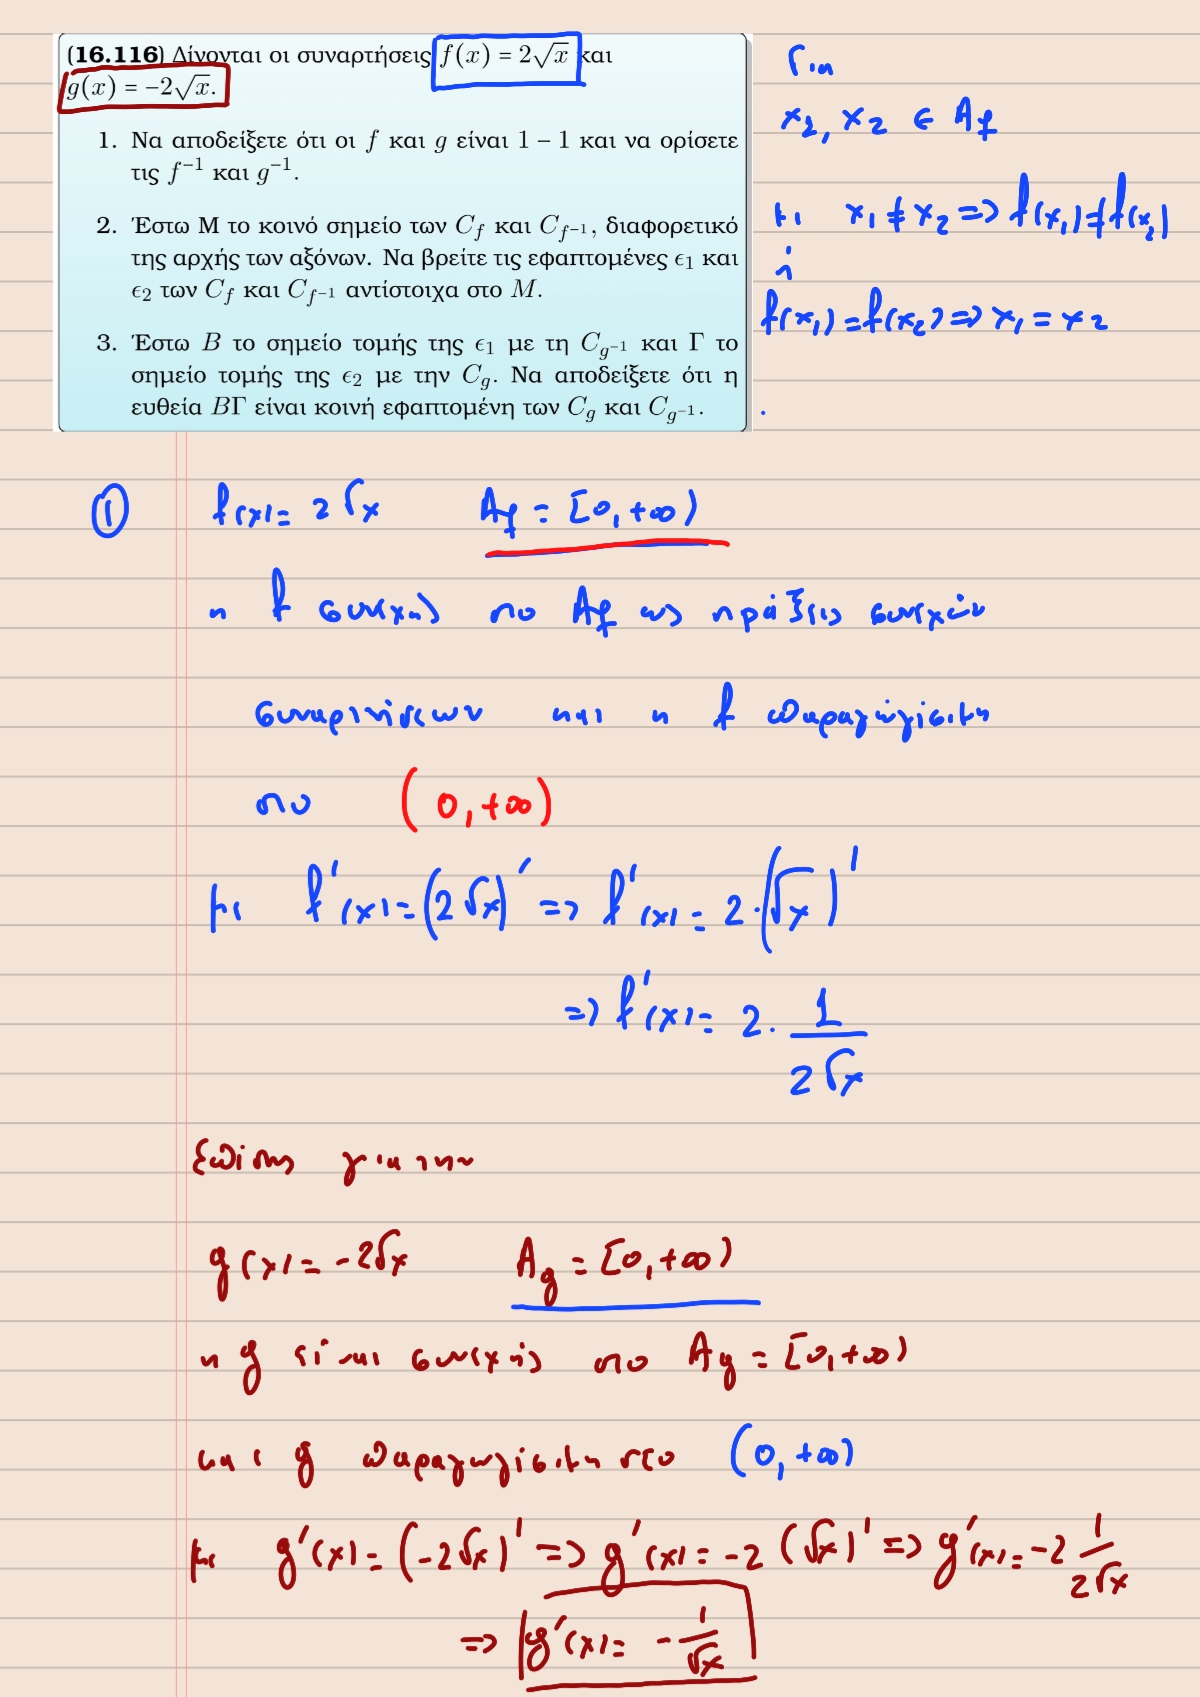 (16.116) Δίνονται οι συναρτήσεις f(x) = 2√x και
g(x) = −2√x.
1. Να αποδείξετε ότι οι f και g είναι 1 − 1 και να ορίσετε
τις f⁻¹ και g⁻¹.
2. Έστω Μ το κοινό σημείο των C_f και C_{f⁻¹}, διαφορετικό
της αρχής των αξόνων. Να βρείτε τις εφαπτομένες ϵ₁ και
ϵ₂ των C_f και C_{f⁻¹} αντίστοιχα στο M.
3. Έστω B το σημείο τομής της ϵ₁ με τη C_{g⁻¹} και Γ το
σημείο τομής της ϵ₂ με την C_g. Να αποδείξετε ότι η
ευθεία BΓ είναι κοινή εφαπτομένη των C_g και C_{g⁻¹}.
Για
x₂, x₂ ∈ A_f
με x₁ ≠ x₂ => f(x₁) ≠ f(x₂)
ή
f(x₁) = f(x₂) => x₁ = x₂
① f(x) = 2√x A_f = [0, +∞)
η f συνεχής στο A_f ως πράξεις συνεχών
συναρτήσεων και η f παραγωγίσιμη
στο (0, +∞)
με f'(x) = (2√x)' => f'(x) = 2·(√x)'
=> f'(x) = 2· 1/(2√x)
Επίσης για την
g(x) = -2√x A_g = [0, +∞)
η g είναι συνεχής στο A_g = [0, +∞)
και g παραγωγίσιμη στο (0, +∞)
με g'(x) = (-2√x)' => g'(x) = -2 (√x)' => g'(x) = -2 1/(2√x)
=> g'(x) = - 1/√x